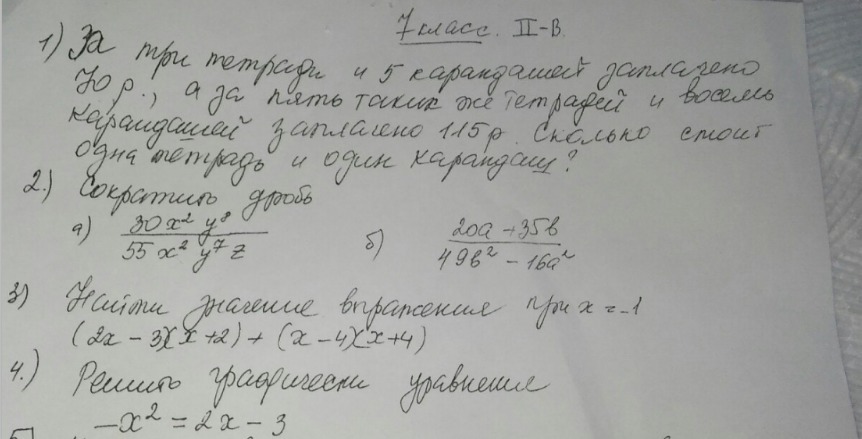 7 класс. II-В.
1) За три тетради и 5 карандашей заплачено
70 р., а за пять таких же тетрадей и восемь
карандашей заплачено 115 р. Сколько стоит
одна тетрадь и один карандаш?
2.) Сократить дробь
а) 30x² y⁸ / 55 x² y⁷ z б) 20a + 35b / 49b² - 16a²
3) Найти значение выражения при x = -1
(2x - 3)(x + 2) + (x - 4)(x + 4)
4.) Решить графически уравнение
-x² = 2x - 3